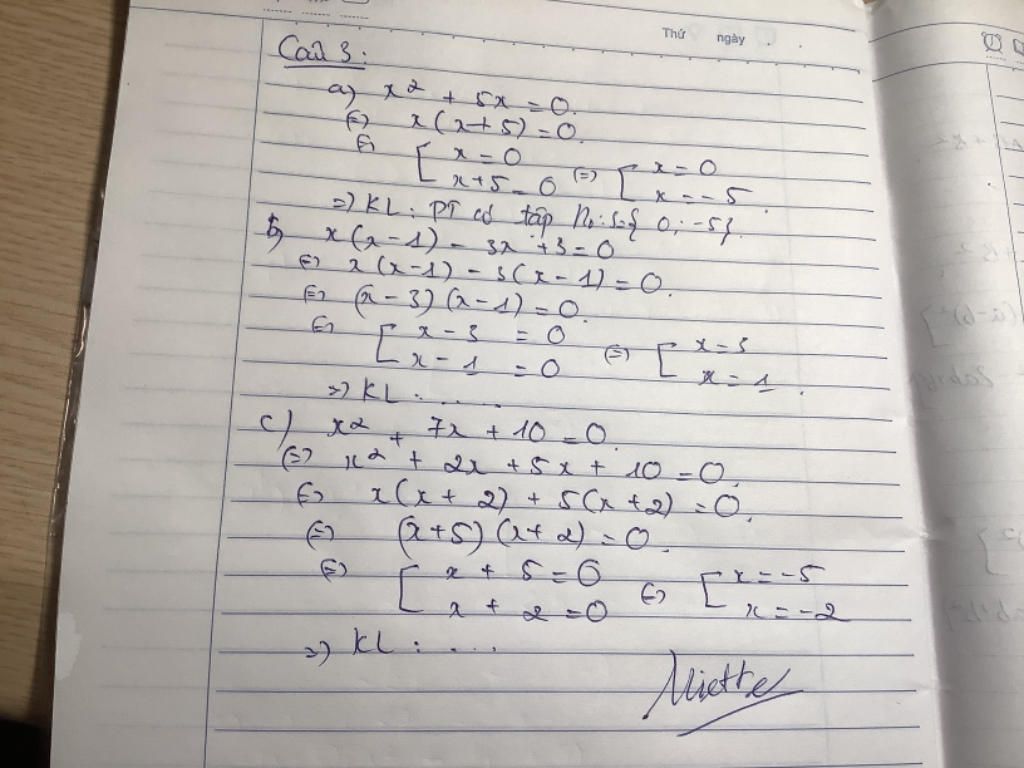 Thứ ngày
Câu 3:
a) x² + 5x = 0.
(=) x(x+5) = 0.
(=) [ x = 0 / x+5 = 0 (=) [ x = 0 / x = -5.
=) KL: PT có tập no: S={ 0; -5}.
b) x(x-1) - 3x + 3 = 0
(=) x(x-1) - 3(x-1) = 0.
(=) (x-3)(x-1) = 0.
(=) [ x-3 = 0 / x-1 = 0 (=) [ x=3 / x=1.
=) KL: .....
c) x² + 7x + 10 = 0.
(=) x² + 2x + 5x + 10 = 0.
(=) x(x+2) + 5(x+2) = 0.
(=) (x+5)(x+2) = 0.
(=) [ x + 5 = 0 / x + 2 = 0 (=) [ x = -5 / x = -2
=) KL: ....
Miette